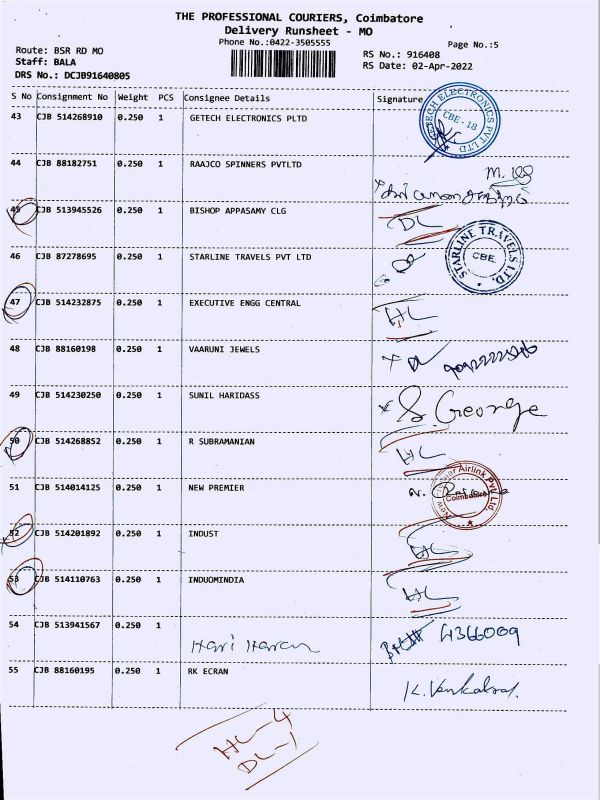 THE PROFESSIONAL COURIERS, Coimbatore
Delivery Runsheet - MO
Phone No.:0422-3505555
Page No.:5
Route: BSR RD MO
RS No.: 916408
Staff: BALA
RS Date: 02-Apr-2022
DRS No.: DCJB91640805
S No Consignment No Weight PCS Consignee Details Signature
43 CJB 514268910 0.250 1 GETECH ELECTRONICS PLTD
GETECH ELECTRONICS PVT LTD CBE - 18
44 CJB 88182751 0.250 1 RAAJCO SPINNERS PVTLTD
45 CJB 513945526 0.250 1 BISHOP APPASAMY CLG DL
46 CJB 87278695 0.250 1 STARLINE TRAVELS PVT LTD
STARLINE TRAVELS PVT LTD. CBE.
47 CJB 514232875 0.250 1 EXECUTIVE ENGG CENTRAL HL
48 CJB 88160198 0.250 1 VAARUNI JEWELS
49 CJB 514230250 0.250 1 SUNIL HARIDASS S. George
50 CJB 514268852 0.250 1 R SUBRAMANIAN HL
51 CJB 514014125 0.250 1 NEW PREMIER
Airlink Pvt Ltd Coimbatore
52 CJB 514201892 0.250 1 INDUST HL
53 CJB 514110763 0.250 1 INDUOMINDIA HL
54 CJB 513941567 0.250 1 Hari Haran 4366009
55 CJB 88160195 0.250 1 RK ECRAN
HL-4
DL-1